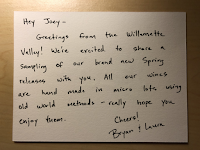 Hey Joey-
Greetings from the Willamette
Valley! We're excited to share a
Sampling of our brand new Spring
releases with you. All our wines
are hand made in micro lots using
old world methods - really hope you
enjoy them.
Cheers!
Bryan + Laura